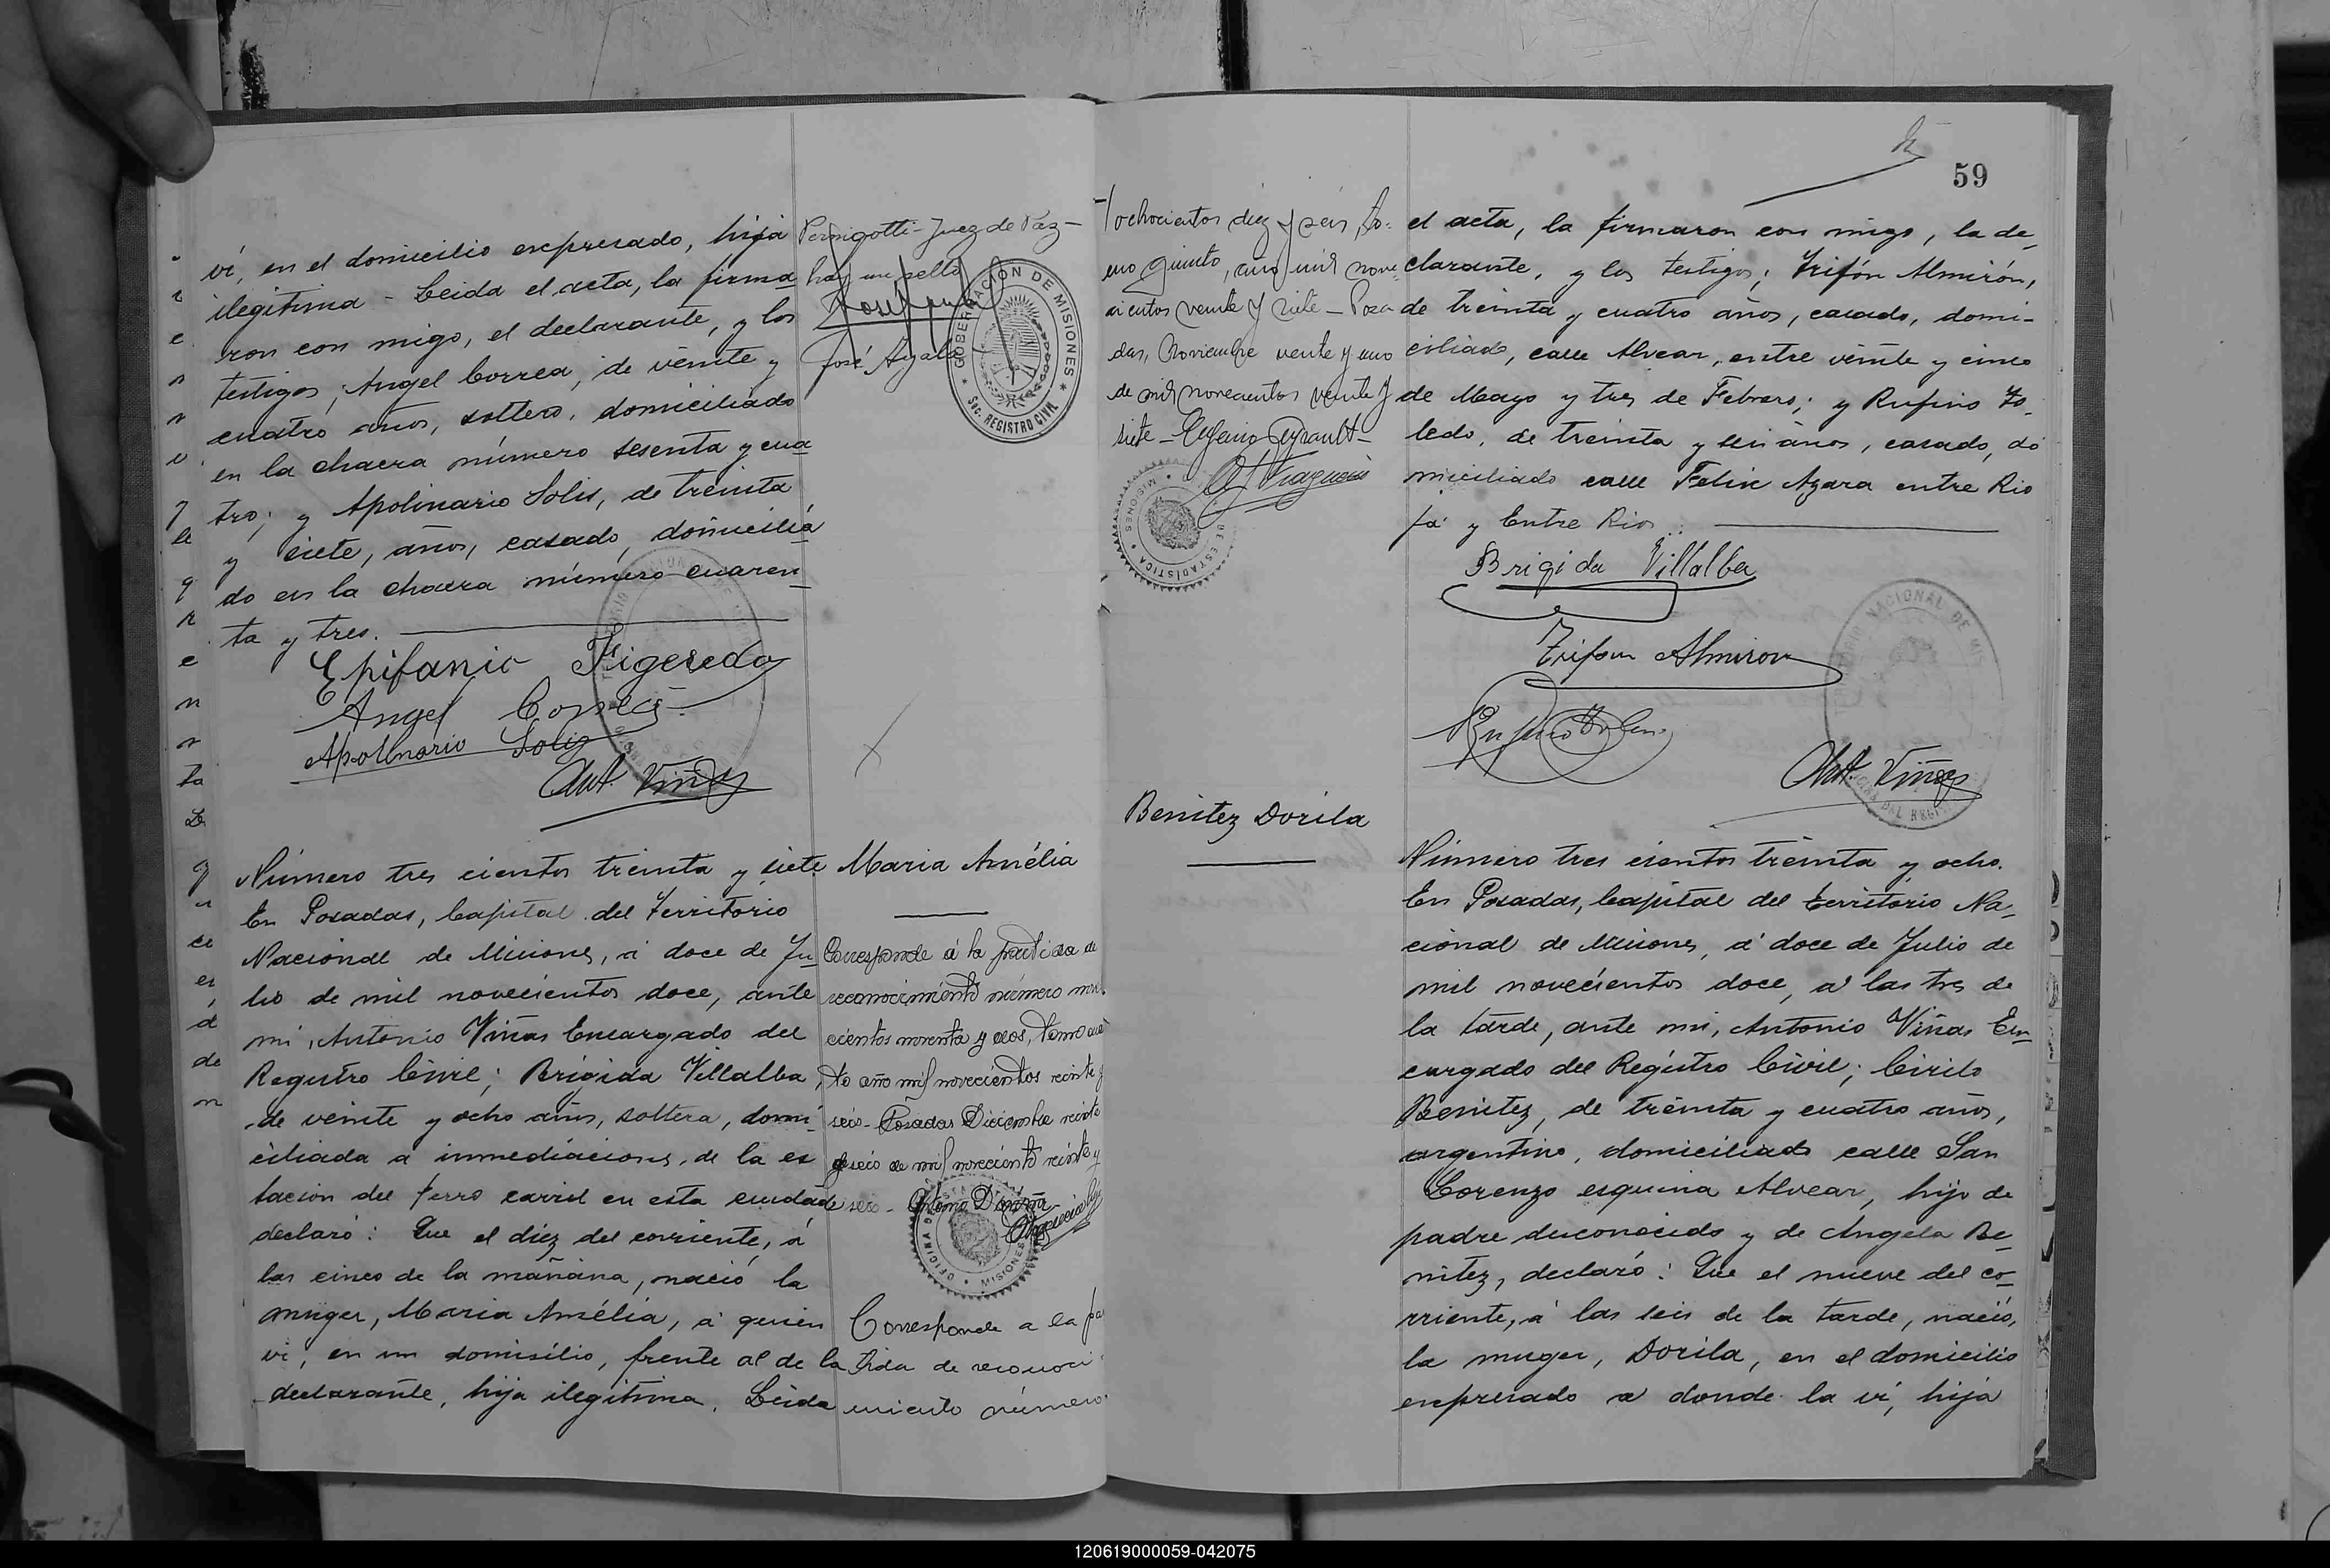 vi, en el domicilio expresado, hija
ilegitima - Leida el acta, la firma
ron con migo, el declarante, y los
testigos, Angel Correa, de veinte y
cuatro años, soltero, domiciliado
en la chacra número sesenta y cua
tro; y Apolinario Solis, de treinta
y siete, años, casado, domicilia
do en la chacra número cuaren
ta y tres.
Epifanio Figeredo
Angel Correa
Apolinario Solis
Ant. Viñas
Pernigotti - Juez de Paz -
hay un sello
José Ayala
GOBERNACION DE MISIONES
Sec. REGISTRO CIVIL
Número tres cientos treinta y siete
En Posadas, Capital del Territorio
Nacional de Misiones, á doce de Ju
lio de mil novecientos doce, ante
mi, Antonio Viñas Encargado del
Registro Civil; Brígida Villalba,
de veinte y ocho años, soltera, domi
ciliada a inmediaciones, de la es
tacion del ferro carril en esta ciudad
declaró: Que el diez del corriente, á
las cinco de la mañana, nació la
muger, Maria Amélia, á quien
vi, en un domisilio, frente al de la
declarante, hija ilegitima. Leida
Maria Amélia
Corresponde á la partida de
reconocimiento número
cientos noventa y dos, Tomo cua
to año mil novecientos veinte y
seis - Posadas Diciembre veinte
y seis de mil novecientos veinte y
seis -
OFICINA DE ESTADISTICA MISIONES
Corresponde a la pa
tida de reconoci
miento número
59
ochocientos diez y seis, to-
mo quinto, año mil nove
cientos veinte y siete - Posa
das, Noviembre veinte y uno
de mil novecientos veinte y
siete -
DE ESTADISTICA MISIONES
el acta, la firmaron con migo, la de
clarante, y los testigos; Trifón Almirón,
de treinta y cuatro años, casado, domi-
ciliado, calle Alvear, entre veinte y cinco
de Mayo y tres de Febrero; y Rufino To
ledo, de treinta y seis años, casado, do
miciliado calle Felix Azara entre Rio
ja y Entre Rios
Brigida Villalba
Trifon Almiron
Rufino Toledo
Ant. Viñas
Benitez Dorila
Número tres cientos treinta y ocho.
En Posadas, Capital del territorio Na
cional de Misiones, á doce de Julio de
mil novecientos doce, á las tres de
la tarde, ante mi, Antonio Viñas En
cargado del Registro Civil; Cirilo
Benitez, de treinta y cuatro años,
argentino, domiciliado calle San
Lorenzo esquina Alvear, hijo de
padre desconocido y de Angela Be
nitez, declaró: Que el nueve del co
rriente, á las seis de la tarde, nació,
la muger, Dorila, en el domicilio
expresado a donde la vi, hija
120619000059-042075